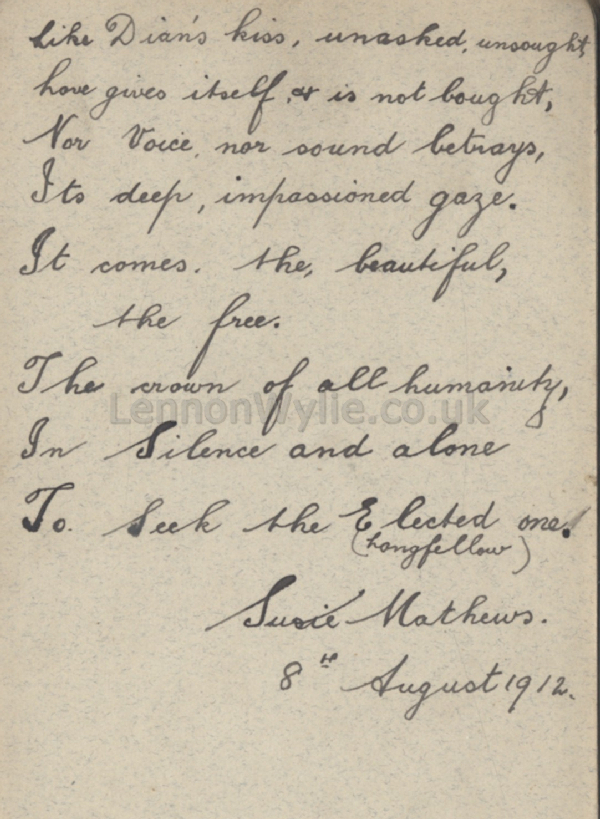 Like Dian's kiss, unasked, unsought,
Love gives itself, & is not bought,
Nor Voice, nor sound betrays,
Its deep, impassioned gaze.
It comes. the, beautiful,
the free.
The crown of all humanity,
LennonWylie.co.uk
In Silence and alone
To. Seek the Elected one.
(Longfellow)
Susie Mathews.
8th August 1912.